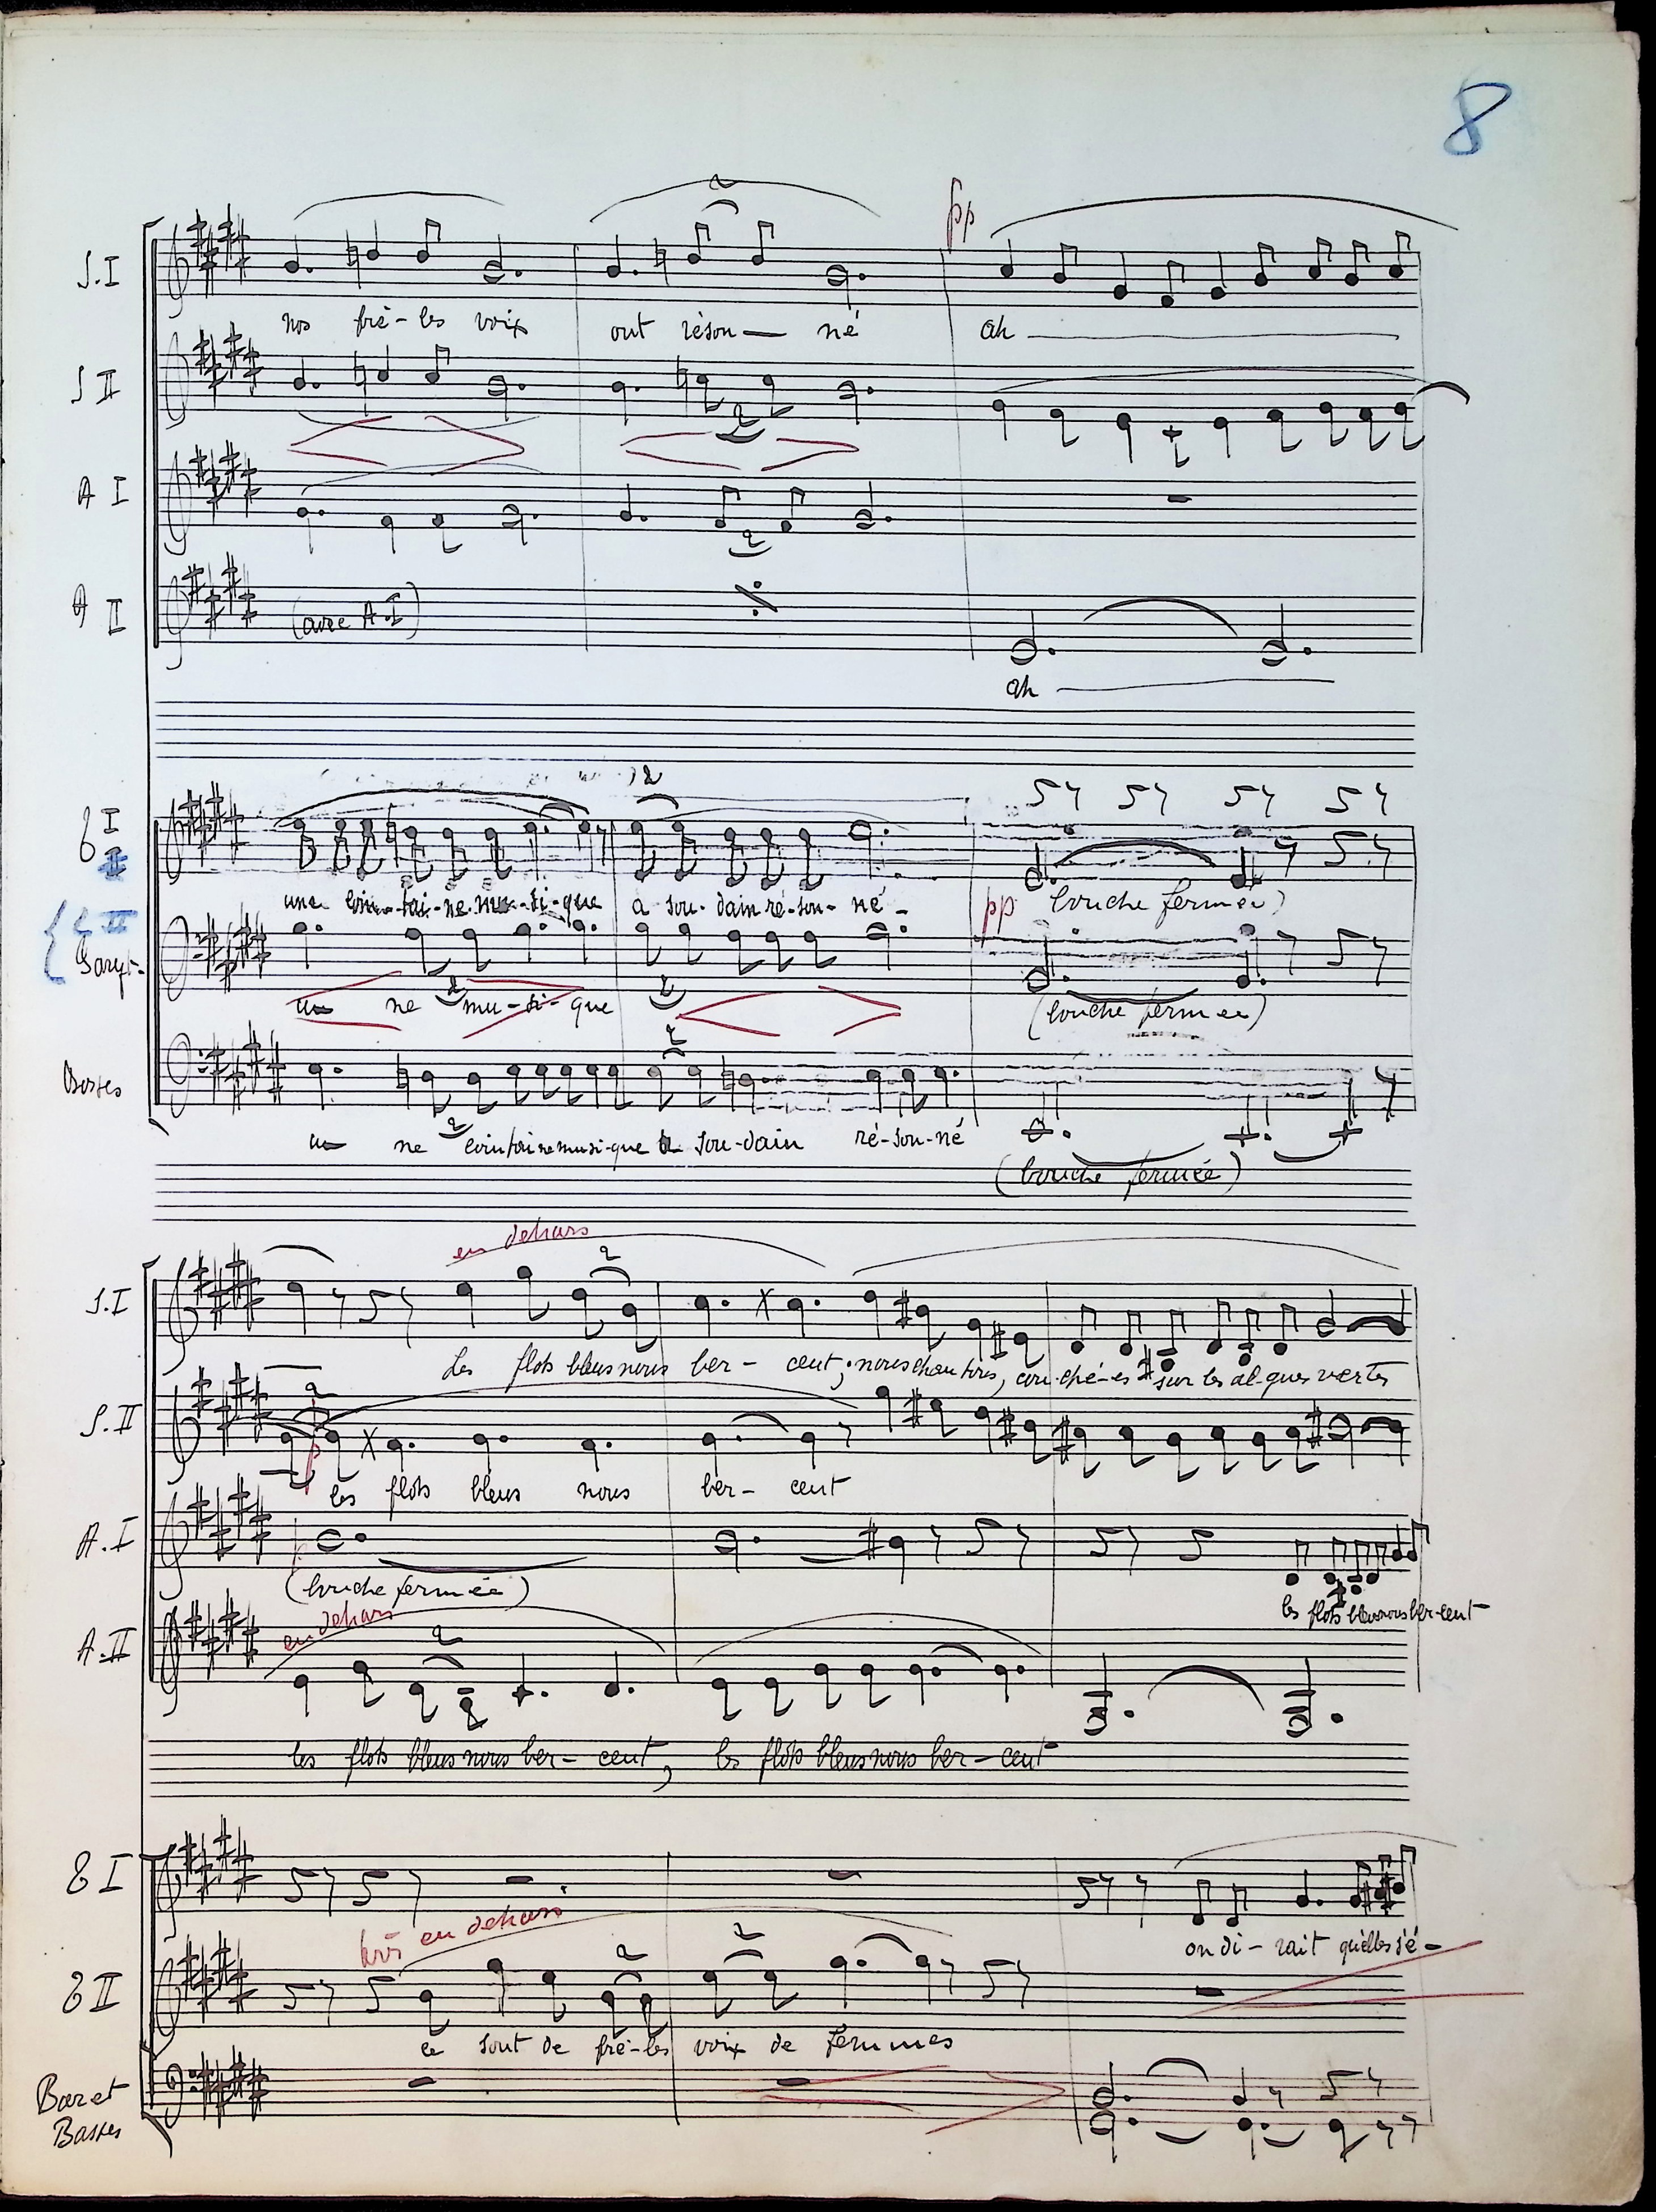 8
pp
S.I
nos frê-les voix ont réson— né ah
S II
A I
A II
(avec A.I)
ah
I
une loin-tai-ne mu-si-que a sou-dain ré-son-né-
pp bouche fermée)
II
Baryt-
u ne mu-si-que
(bouche fermée)
Basses
u ne lointaine musi-que a sou-dain ré-son-né
(bouche fermée)
en dehors
S.I
Les flots bleus nous ber-cent; nous chantons, cou-ché-es sur les al-gues vertes
S.II
p
les flots bleus nous ber-cent
A.I
(bouche fermée)
les flots bleus nous ber-cent
en dehors
A.II
les flots bleus nous ber-cent, les flots bleus nous ber-cent
T I
on di-rait qu'elles s'é-
très en dehors
T II
ce sont de frê-les voix de femmes
Bar et
Basses